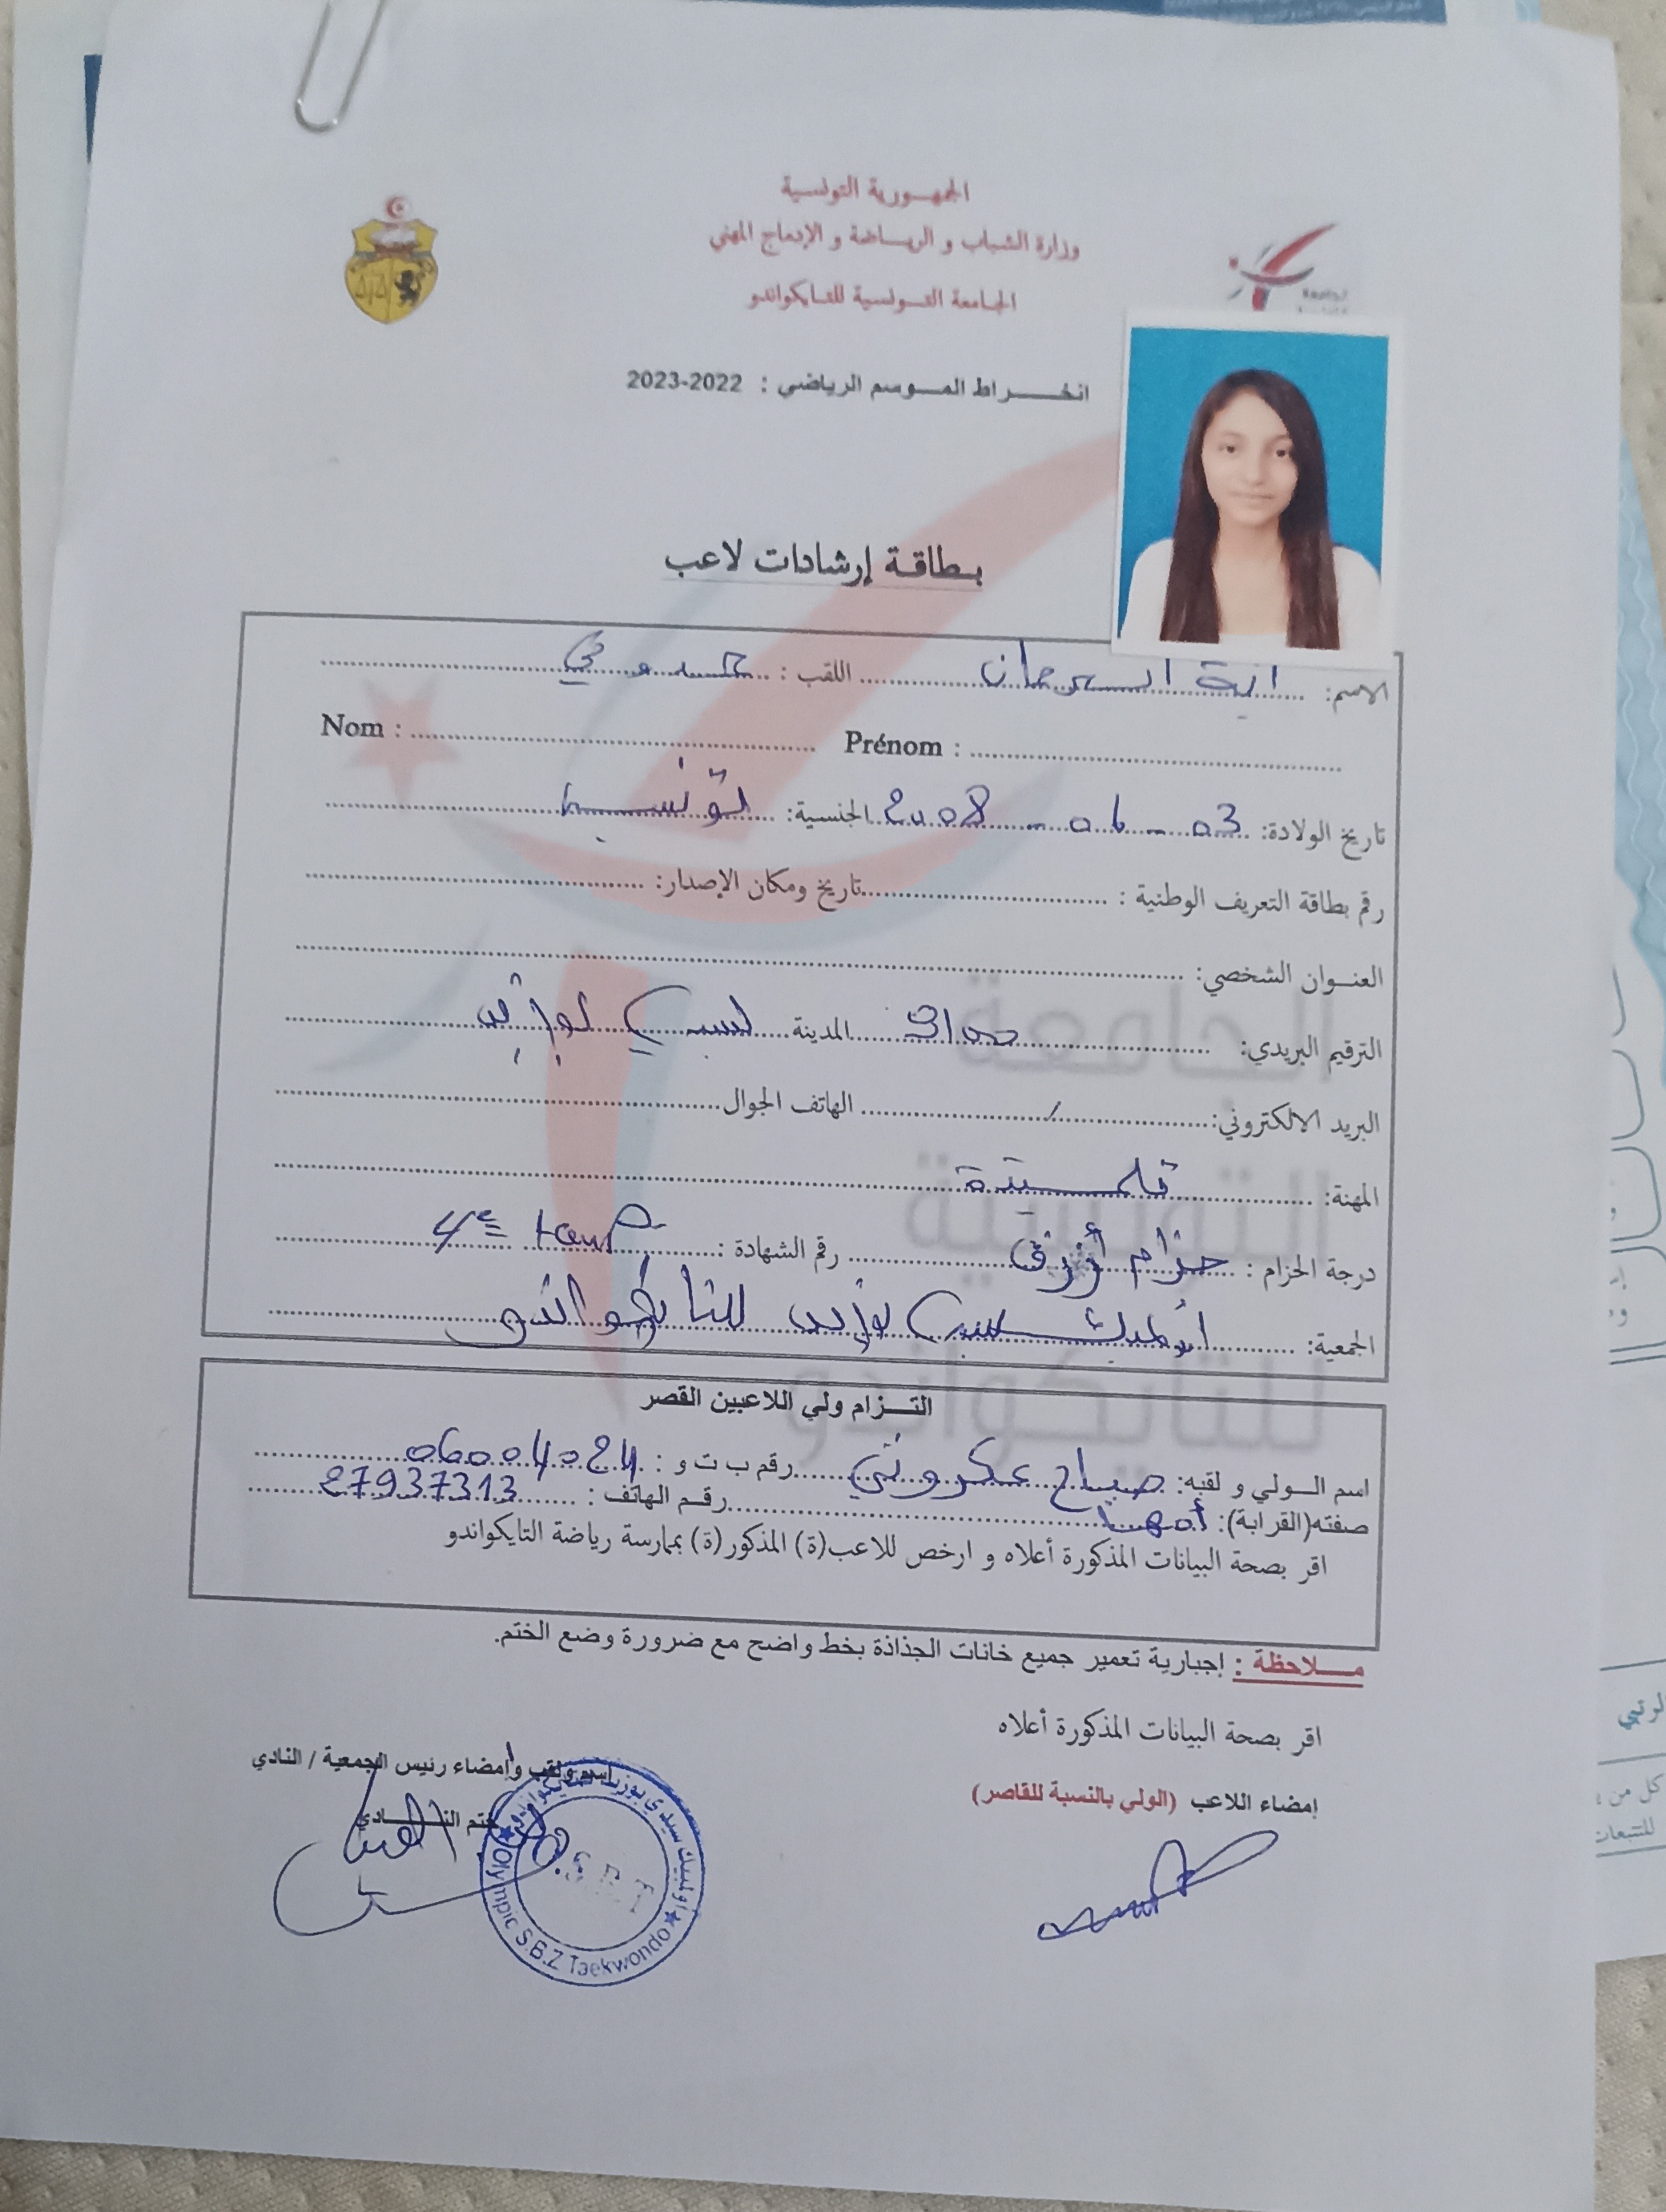 الجمهورية التونسية
وزارة الشباب و الرياضة و الإدماج المهني
الجامعة التونسية للتايكواندو
انخراط الموسم الرياضي : 2022-2023
بطاقة إرشادات لاعب
الاسم: آية الرحمان اللقب :
Nom : Prénom :
تاريخ الولادة: 03 - 06 - 2008 الجنسية: تونسية
رقم بطاقة التعريف الوطنية : تاريخ ومكان الإصدار:
العنوان الشخصي:
الترقيم البريدي: المدينة سيدي بوزيد
البريد الالكتروني: / الهاتف الجوال
المهنة: تلميذة
درجة الحزام : حزام أزرق رقم الشهادة : 4e keup
الجمعية: أولمبيك سيدي بوزيد للتايكواندو
الجامعة
التونسية
للتايكواندو
التزام ولي اللاعبين القصر
اسم الولي و لقبه: صباح عكروتي رقم ب ت و : 06004024
صفته(القرابة): أمها رقم الهاتف : 27937313
اقر بصحة البيانات المذكورة أعلاه و ارخص للاعب(ة) المذكور(ة) بممارسة رياضة التايكواندو
ملاحظة : إجبارية تعمير جميع خانات الجذاذة بخط واضح مع ضرورة وضع الختم.
اقر بصحة البيانات المذكورة أعلاه
إمضاء اللاعب (الولي بالنسبة للقاصر)
اسم ولقب وإمضاء رئيس الجمعية / النادي
ختم النادي
أولمبيك سيدي بوزيد للتايكواندو
O.S.B.T
Olympic S.B.Z Taekwondo